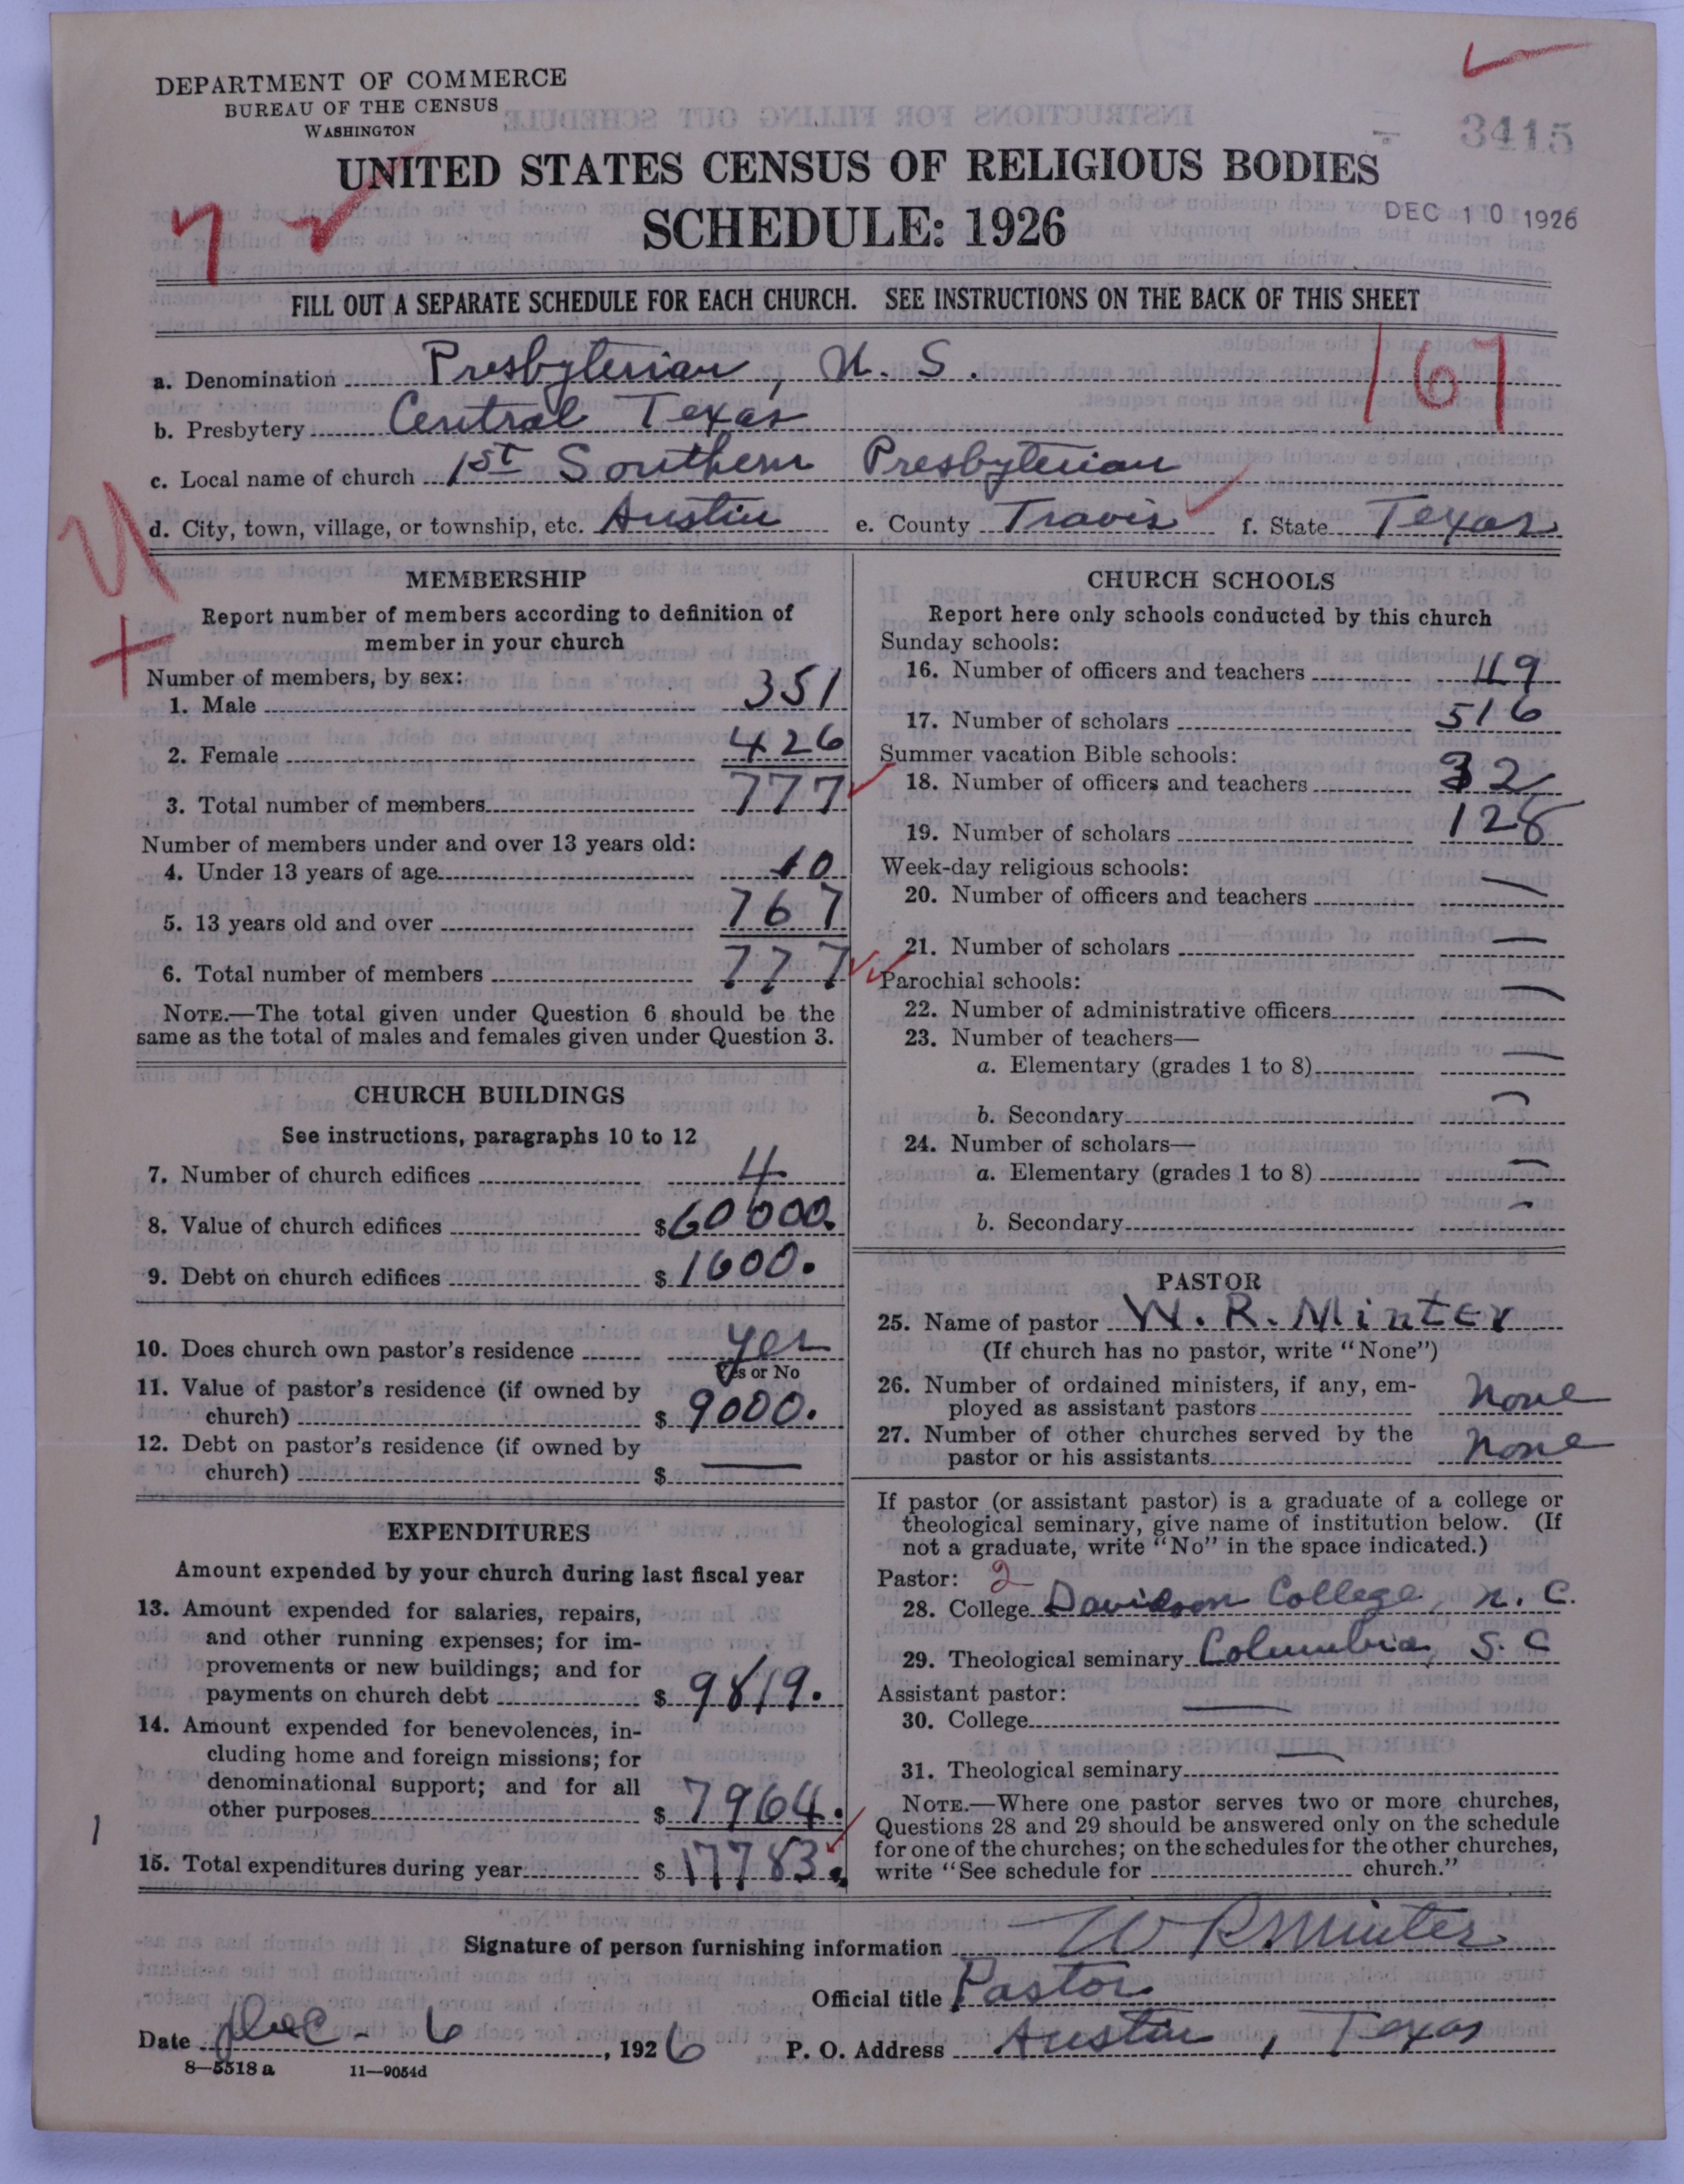 DEPARTMENT OF COMMERCE
BUREAU OF THE CENSUS
WASHINGTON
3415
UNITED STATES CENSUS OF RELIGIOUS BODIES
SCHEDULE: 1926
DEC 10 1926
FILL OUT A SEPARATE SCHEDULE FOR EACH CHURCH. SEE INSTRUCTIONS ON THE BACK OF THIS SHEET
161
a. Denomination Presbyterian, U. S.
b. Presbytery Central Texas
c. Local name of church 1st Southern Presbyterian
d. City, town, village, or township, etc. Austin e. County Travis f. State Texas
MEMBERSHIP
Report number of members according to definition of
member in your church
Number of members, by sex:
1. Male 351
2. Female 426
3. Total number of members 777
Number of members under and over 13 years old:
4. Under 13 years of age 10
5. 13 years old and over 767
6. Total number of members 777
NOTE.—The total given under Question 6 should be the
same as the total of males and females given under Question 3.
CHURCH BUILDINGS
See instructions, paragraphs 10 to 12
7. Number of church edifices 4
8. Value of church edifices $60000.
9. Debt on church edifices $1600.
10. Does church own pastor's residence yes
Yes or No
11. Value of pastor's residence (if owned by
church) $9000.
12. Debt on pastor's residence (if owned by
church) $ —
EXPENDITURES
Amount expended by your church during last fiscal year
13. Amount expended for salaries, repairs,
and other running expenses; for im-
provements or new buildings; and for
payments on church debt $9819.
14. Amount expended for benevolences, in-
cluding home and foreign missions; for
denominational support; and for all
other purposes $7964.
15. Total expenditures during year $17783.
1
CHURCH SCHOOLS
Report here only schools conducted by this church
Sunday schools:
16. Number of officers and teachers 49
17. Number of scholars 516
Summer vacation Bible schools:
18. Number of officers and teachers 32
19. Number of scholars 128
Week-day religious schools:
20. Number of officers and teachers —
21. Number of scholars —
Parochial schools:
22. Number of administrative officers —
23. Number of teachers—
a. Elementary (grades 1 to 8) —
b. Secondary —
24. Number of scholars—
a. Elementary (grades 1 to 8) —
b. Secondary —
PASTOR
25. Name of pastor W. R. Minter
(If church has no pastor, write "None")
26. Number of ordained ministers, if any, em-
ployed as assistant pastors None
27. Number of other churches served by the
pastor or his assistants None
If pastor (or assistant pastor) is a graduate of a college or
theological seminary, give name of institution below. (If
not a graduate, write "No" in the space indicated.)
Pastor: 2
28. College Davidson College, N. C.
29. Theological seminary Columbia, S. C
Assistant pastor:
30. College —
31. Theological seminary —
NOTE.—Where one pastor serves two or more churches,
Questions 28 and 29 should be answered only on the schedule
for one of the churches; on the schedules for the other churches,
write "See schedule for church."
Signature of person furnishing information W R Minter
Official title Pastor
Date Dec - 6, 1926 P. O. Address Austin, Texas
8—5518 a 11—9054d